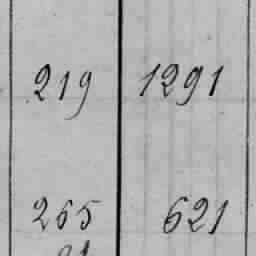 219 1291
265 621